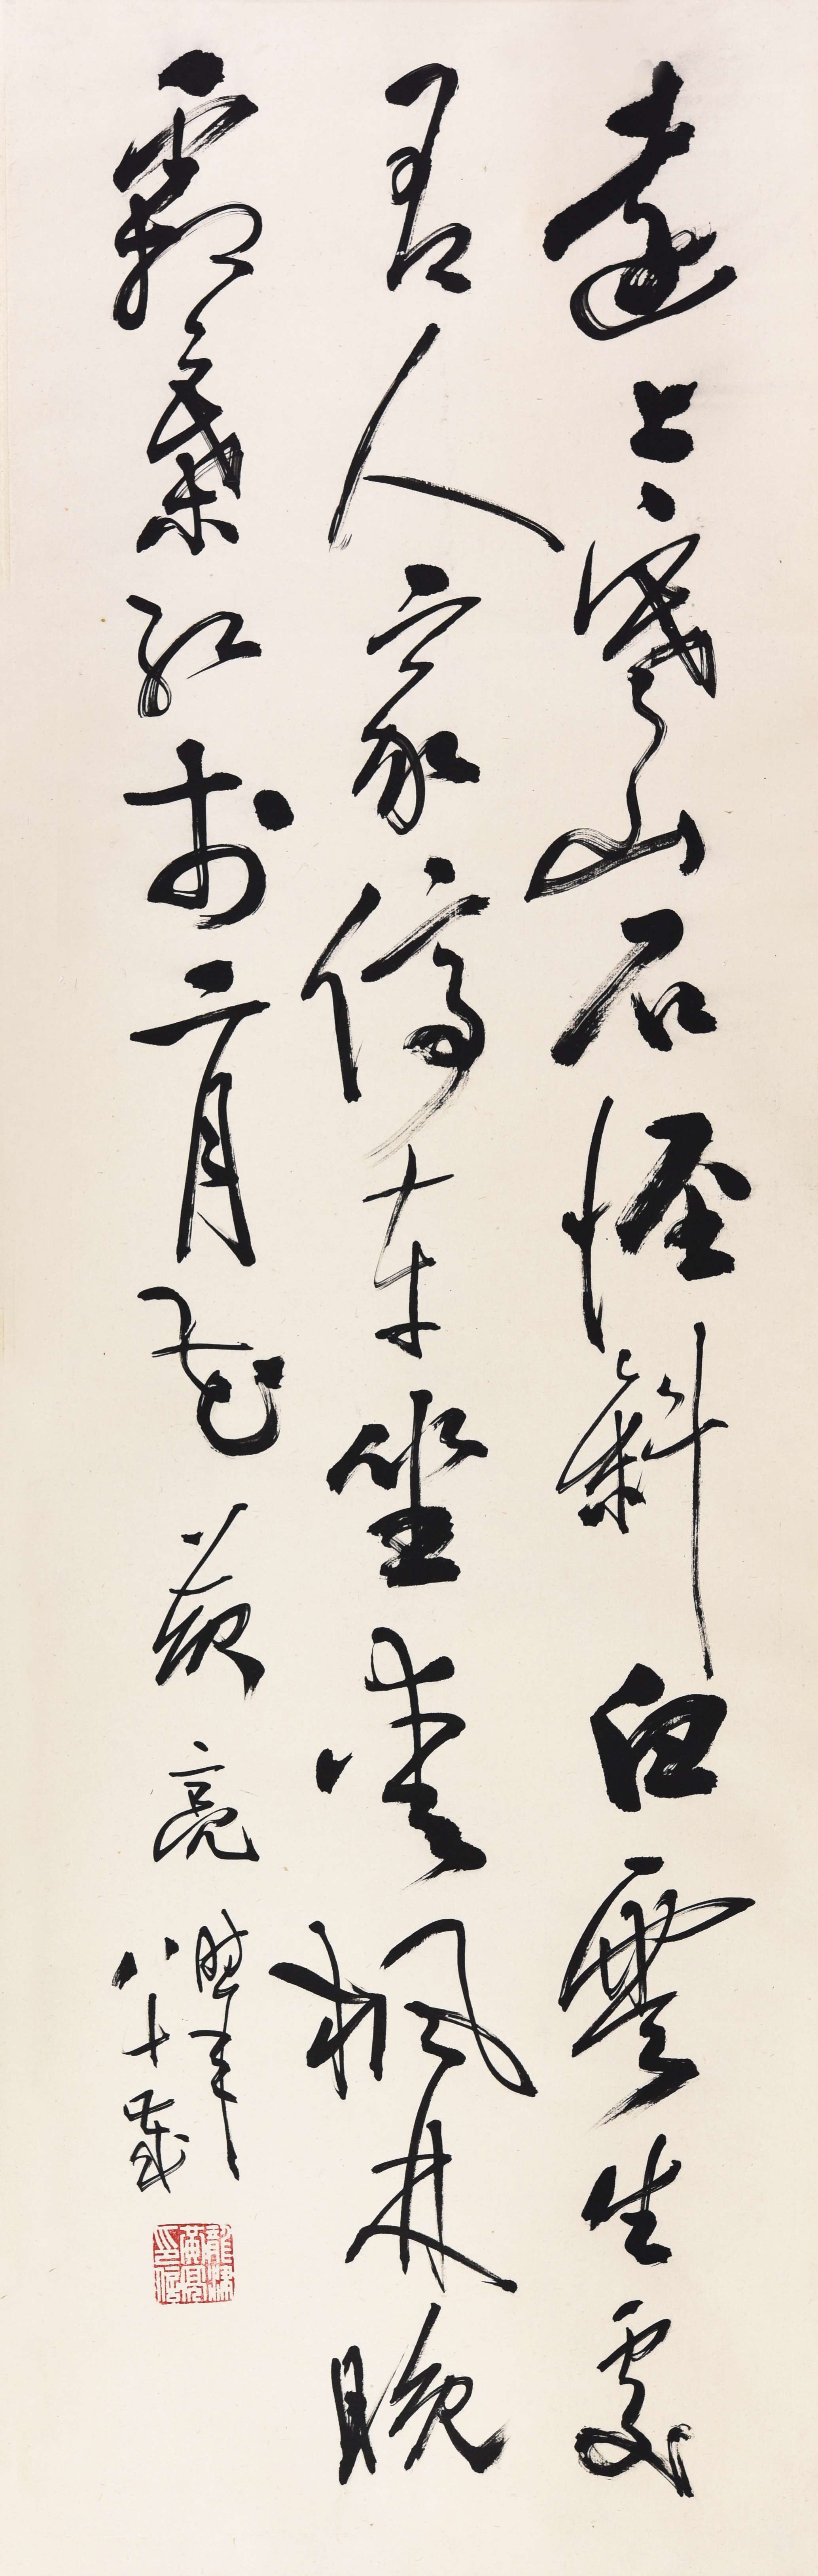 遠上寒山石徑斜白雲生處
有人家停車坐愛楓林晚
霜葉紅於二月花
黃亮
時年
八十歲